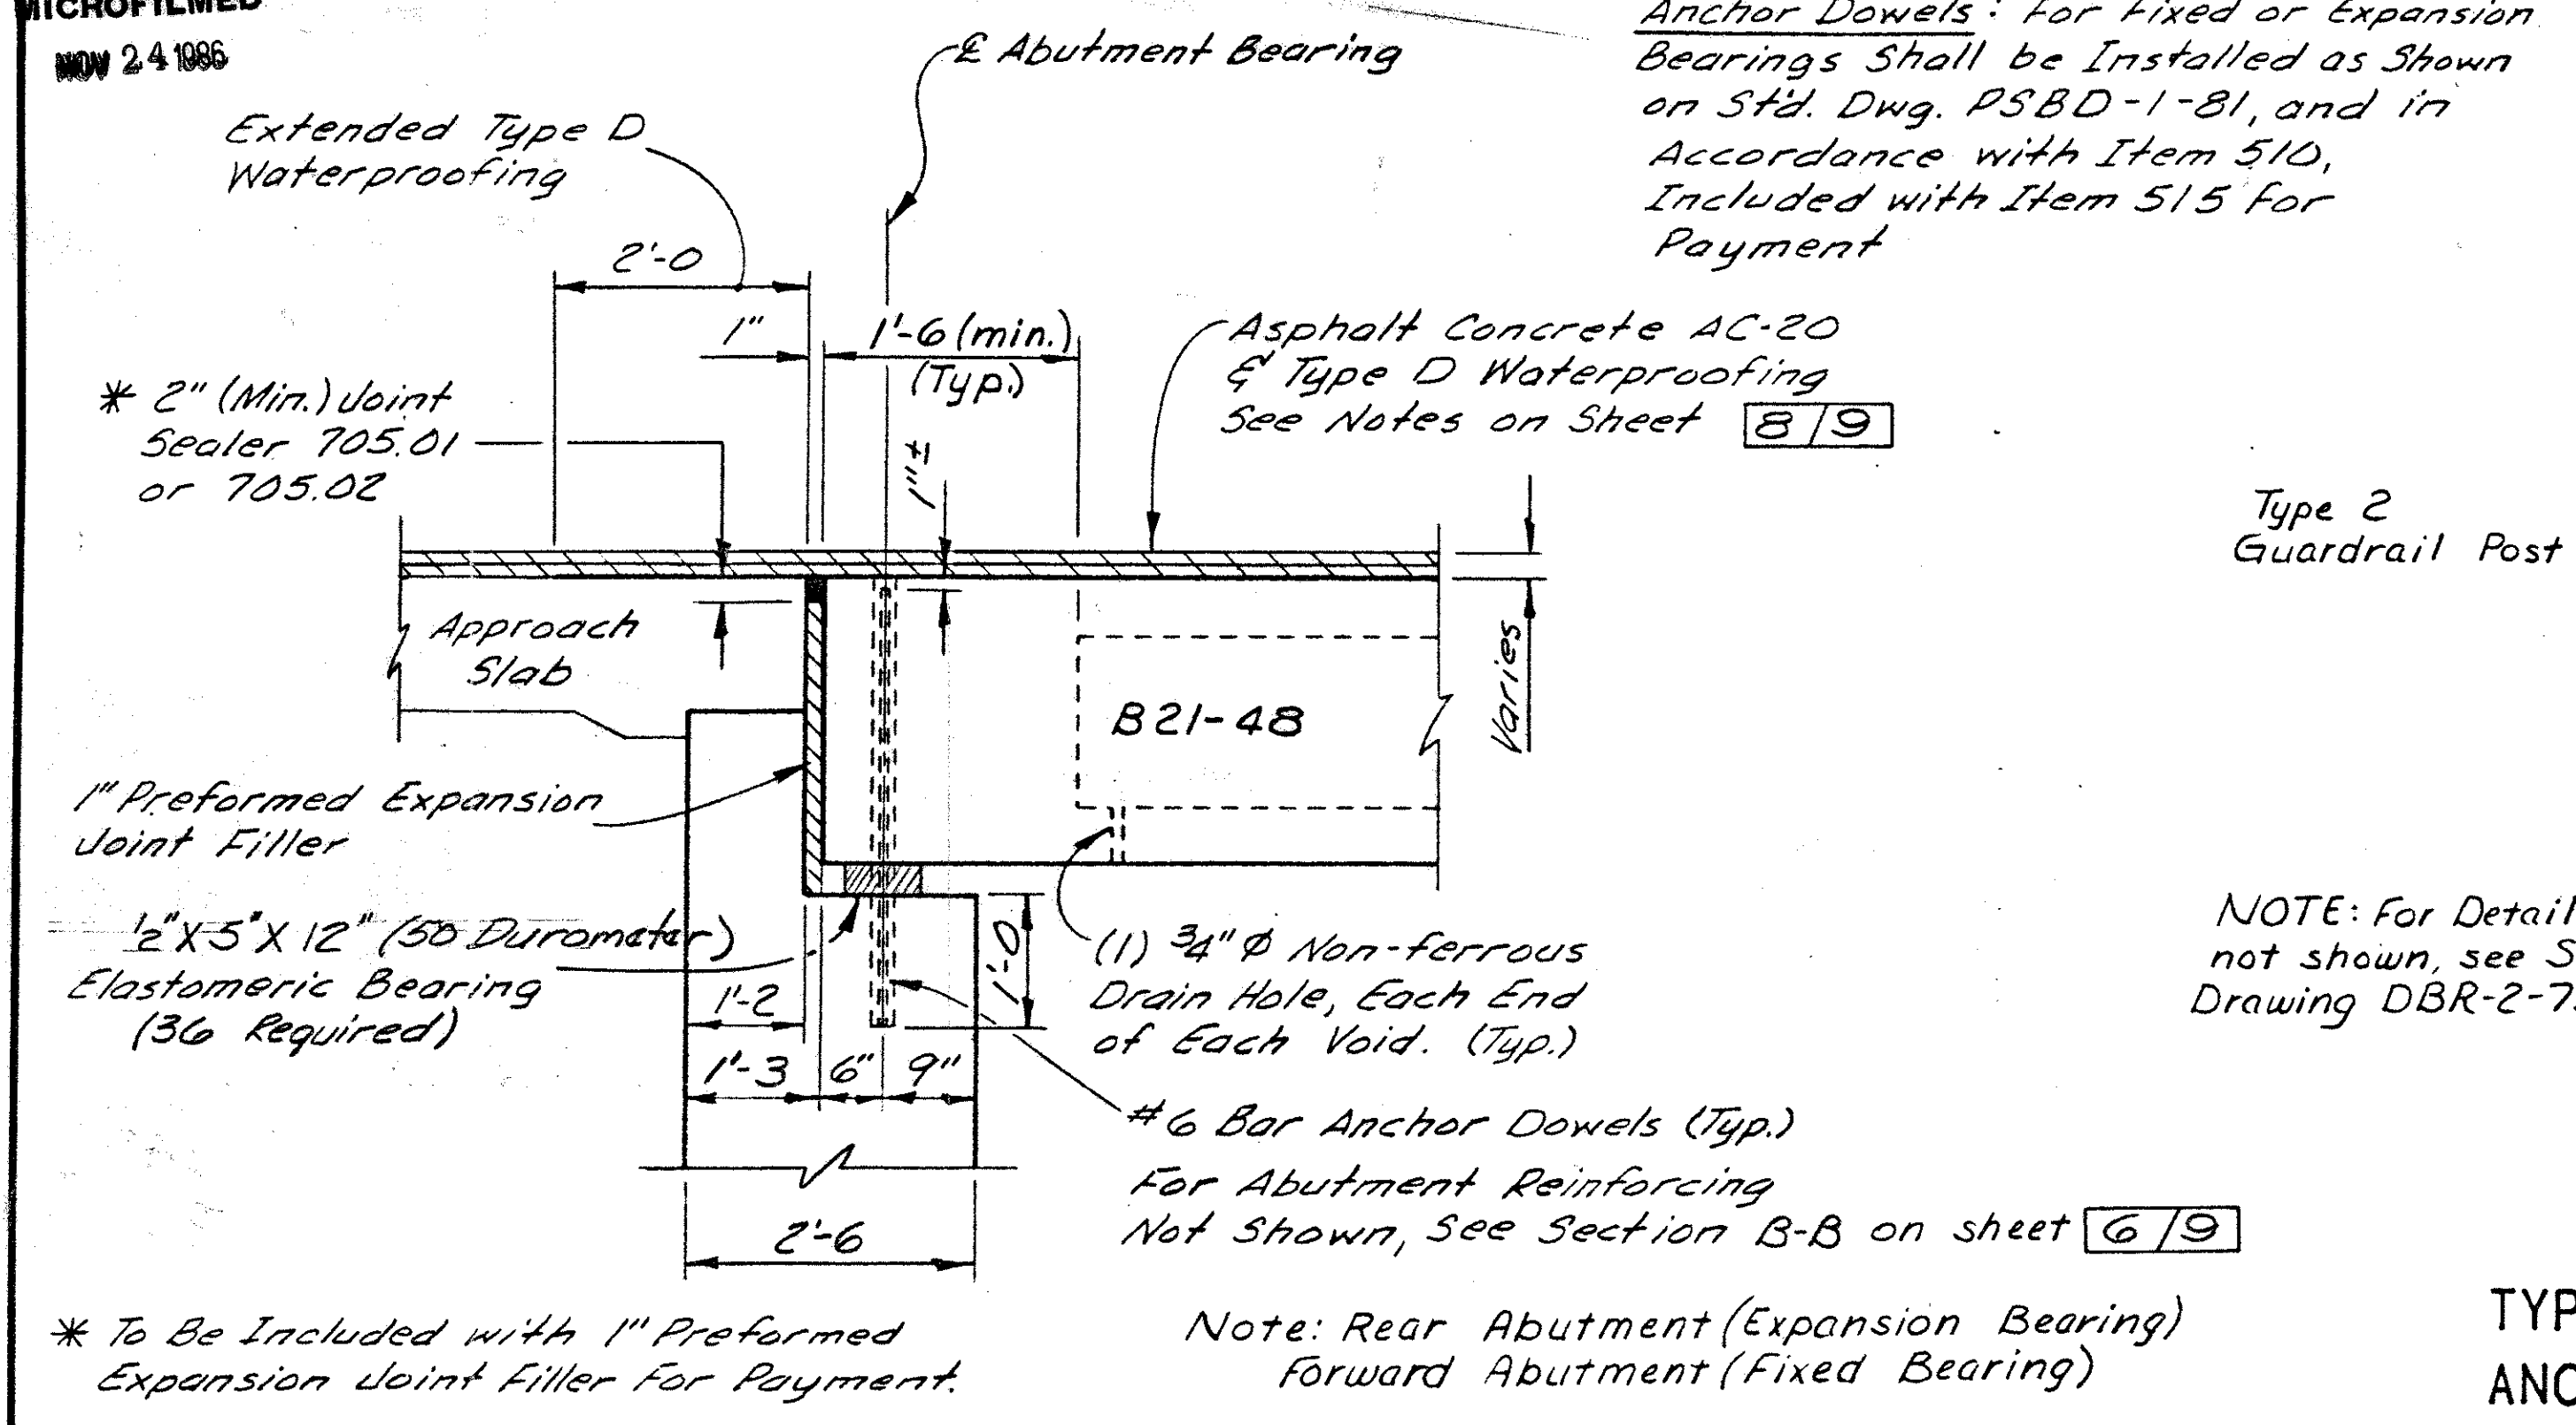 MICROFILMED
NOV 24 1986
℄ Abutment Bearing
Anchor Dowels: For Fixed or Expansion
Bearings Shall be Installed as Shown
on Std. Dwg. PSBD-1-81, and in
Accordance with Item 510,
Included with Item 515 for
Payment
Extended Type D
Waterproofing
2'-0
1"
1'-6 (min.)
(Typ.)
Asphalt Concrete AC-20
& Type D Waterproofing
See Notes on Sheet 8/9
* 2" (Min.) Joint
Sealer 705.01
or 705.02
1"±
Type 2
Guardrail Post
Approach
Slab
B21-48
Varies
1" Preformed Expansion
Joint Filler
½" X 5" X 12" (50 Durometer)
Elastomeric Bearing
(36 Required)
1'-2
1'-0
1'-3 6" 9"
2'-6
(1) ¾" Ø Non-ferrous
Drain Hole, Each End
of Each Void. (Typ.)
NOTE: For Detail
not shown, see S
Drawing DBR-2-7
#6 Bar Anchor Dowels (Typ.)
For Abutment Reinforcing
Not Shown, See Section B-B on sheet 6/9
* To Be Included with 1" Preformed
Expansion Joint Filler For Payment.
Note: Rear Abutment (Expansion Bearing)
Forward Abutment (Fixed Bearing)
TYP
ANC